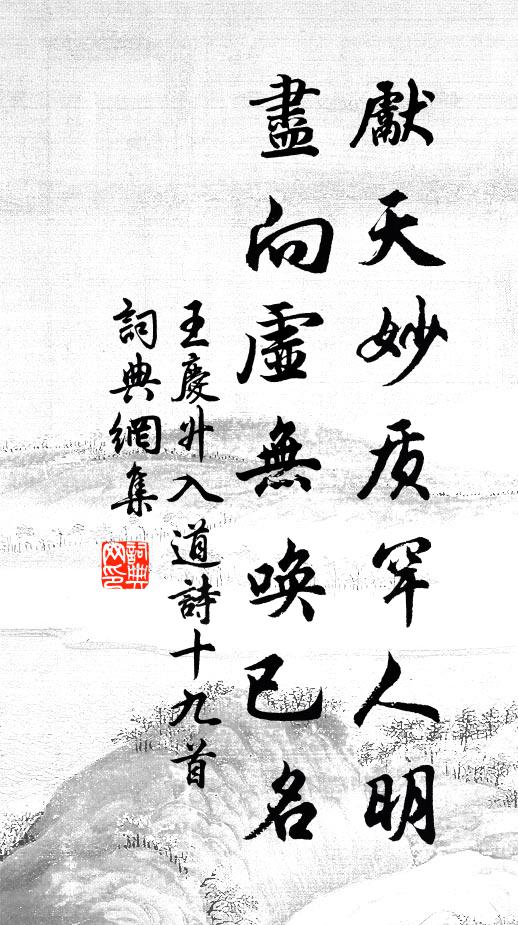 獻天妙质罕人明
盡向虛無喚已名
王慶升入道詩十九首
詞典網集
詞典
网印